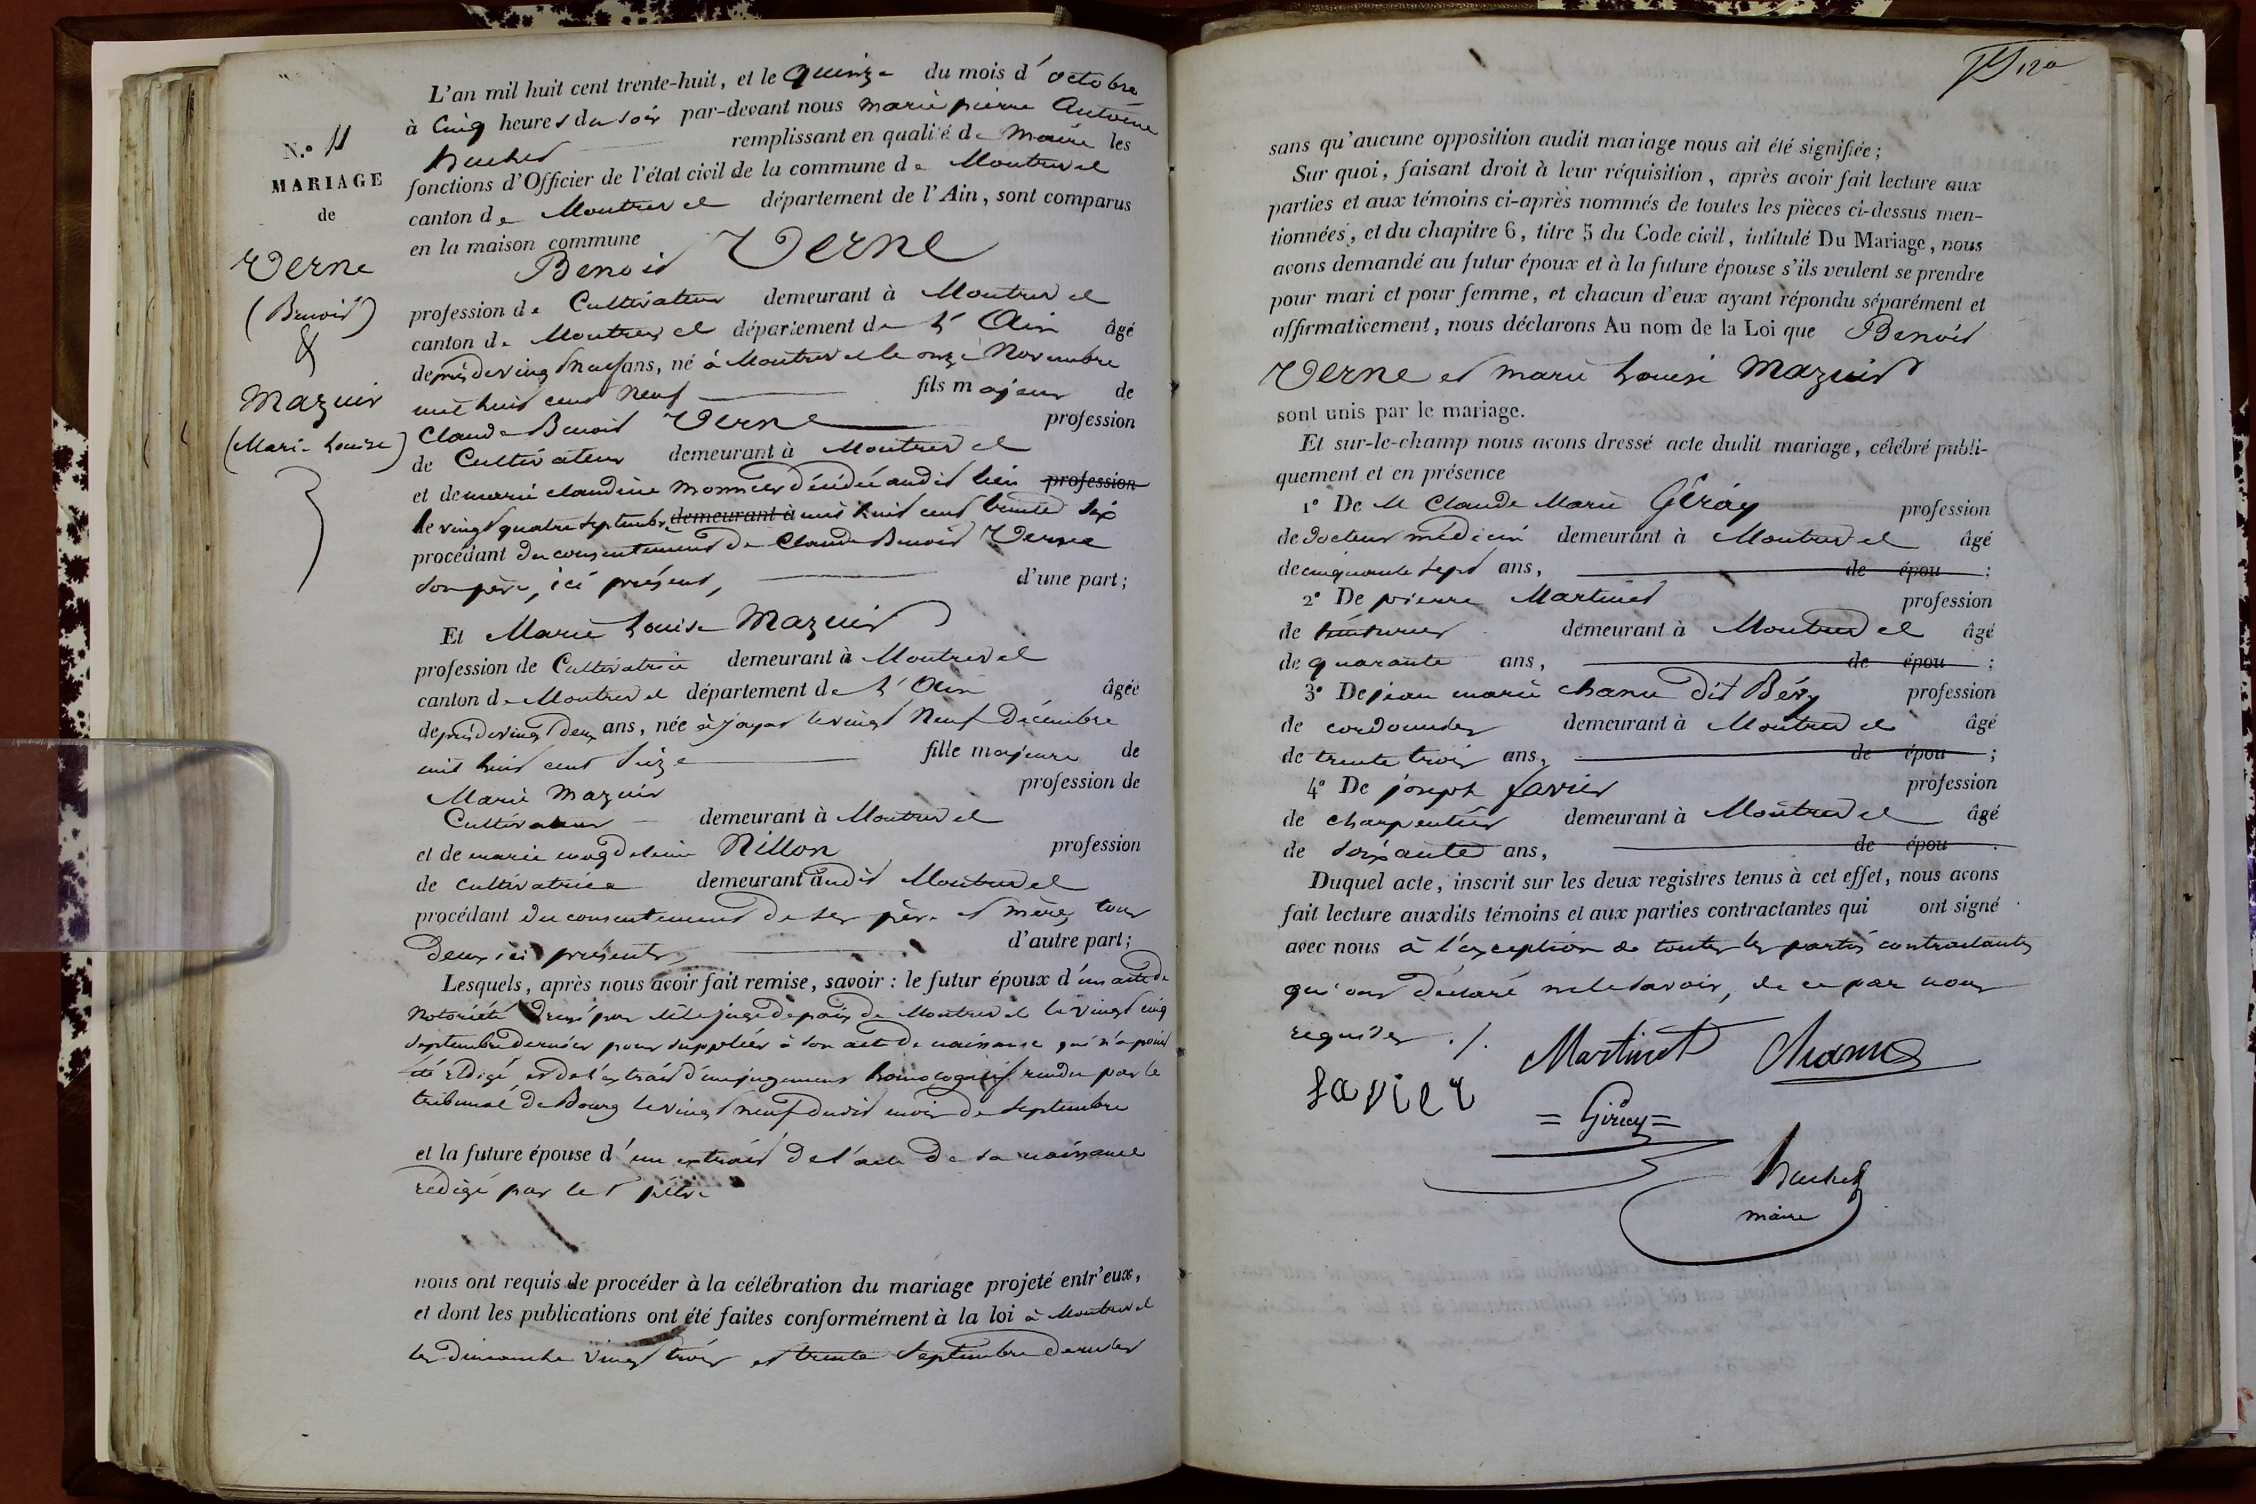 N.º 11
MARIAGE
de
Verne
(Benoit)
&
Mazuir
(Marie Louise)
L'an mil huit cent trente-huit, et le quinze du mois d'octobre
à cinq heures du soir par-devant nous marie pierre Antoine
remplissant en qualité de Maire les
fonctions d'Officier de l'état civil de la commune de Montrevel
canton de Montrevel département de l'Ain, sont comparus
en la maison commune
Benoit Verne
profession de Cultivateur demeurant à Montrevel
canton de Montrevel département de L'Ain âgé
de près de vingt neuf ans, né à Montrevel le onze Novembre
mil huit cent neuf fils majeur de
Claude Benoit Verne profession
de Cultivateur demeurant à Montrevel
et de marie claudine monnier décédée audit lieu profession
le vingt quatre septembre demeurant à mil huit cent trente six
procédant du consentement de Claude Benoit Verne
son père, ici présent, d'une part;
Et Marie Louise Mazuir
profession de Cultivatrice demeurant à Montrevel
canton de Montrevel département de L'Ain âgée
de près de vingt deux ans, née à jayat le vingt neuf Décembre
mil huit cent seize fille majeure de
Marie Mazuir profession de
Cultivateur demeurant à Montrevel
et de marie magdeleine Nillon profession
de cultivatrice demeurant audit Montrevel
procédant du consentement de ses père et mère, tous
deux ici présents, d'autre part;
Lesquels, après nous avoir fait remise, savoir : le futur époux d'un acte de
Notoriété dressé par le juge de paix de Montrevel le vingt cinq
septembre dernier pour suppléer à son acte de naissance qui n'a point
été rédigé, et de l'extrait d'un jugement homologatif rendu par le
tribunal de Bourg le vingt neuf dudit mois de septembre
et la future épouse d'un extrait de l'acte de sa naissance
rédigé par le
nous ont requis de procéder à la célébration du mariage projeté entr'eux,
et dont les publications ont été faites conformément à la loi à Montrevel
les dimanche vingt trois et trente septembre dernier
120
sans qu'aucune opposition audit mariage nous ait été signifiée;
Sur quoi, faisant droit à leur réquisition, après avoir fait lecture aux
parties et aux témoins ci-après nommés de toutes les pièces ci-dessus men-
tionnées, et du chapitre 6, titre 5 du Code civil, intitulé Du Mariage, nous
avons demandé au futur époux et à la future épouse s'ils veulent se prendre
pour mari et pour femme, et chacun d'eux ayant répondu séparément et
affirmativement, nous déclarons Au nom de la Loi que Benoit
Verne et marie Louise Mazuir
sont unis par le mariage.
Et sur-le-champ nous avons dressé acte dudit mariage, célébré publi-
quement et en présence
1º De M Claude Marie Géray profession
de docteur médecin demeurant à Montrevel âgé
de cinquante sept ans, de épou ;
2º De pierre Martinet profession
de teinturier demeurant à Montrevel âgé
de quarante ans, de épou ;
3º De jean marie chanu dit Béry profession
de cordonnier demeurant à Montrevel âgé
de trente trois ans, de épou ;
4º De joseph favier profession
de charpentier demeurant à Montrevel âgé
de soixante ans, de épou .
Duquel acte, inscrit sur les deux registres tenus à cet effet, nous avons
fait lecture auxdits témoins et aux parties contractantes qui ont signé
avec nous à l'exception de toutes les parties contractantes
qui ont déclaré ne le savoir, de ce par nous
requises ./.
Martinet Chanu
favier
= Géray =
maire